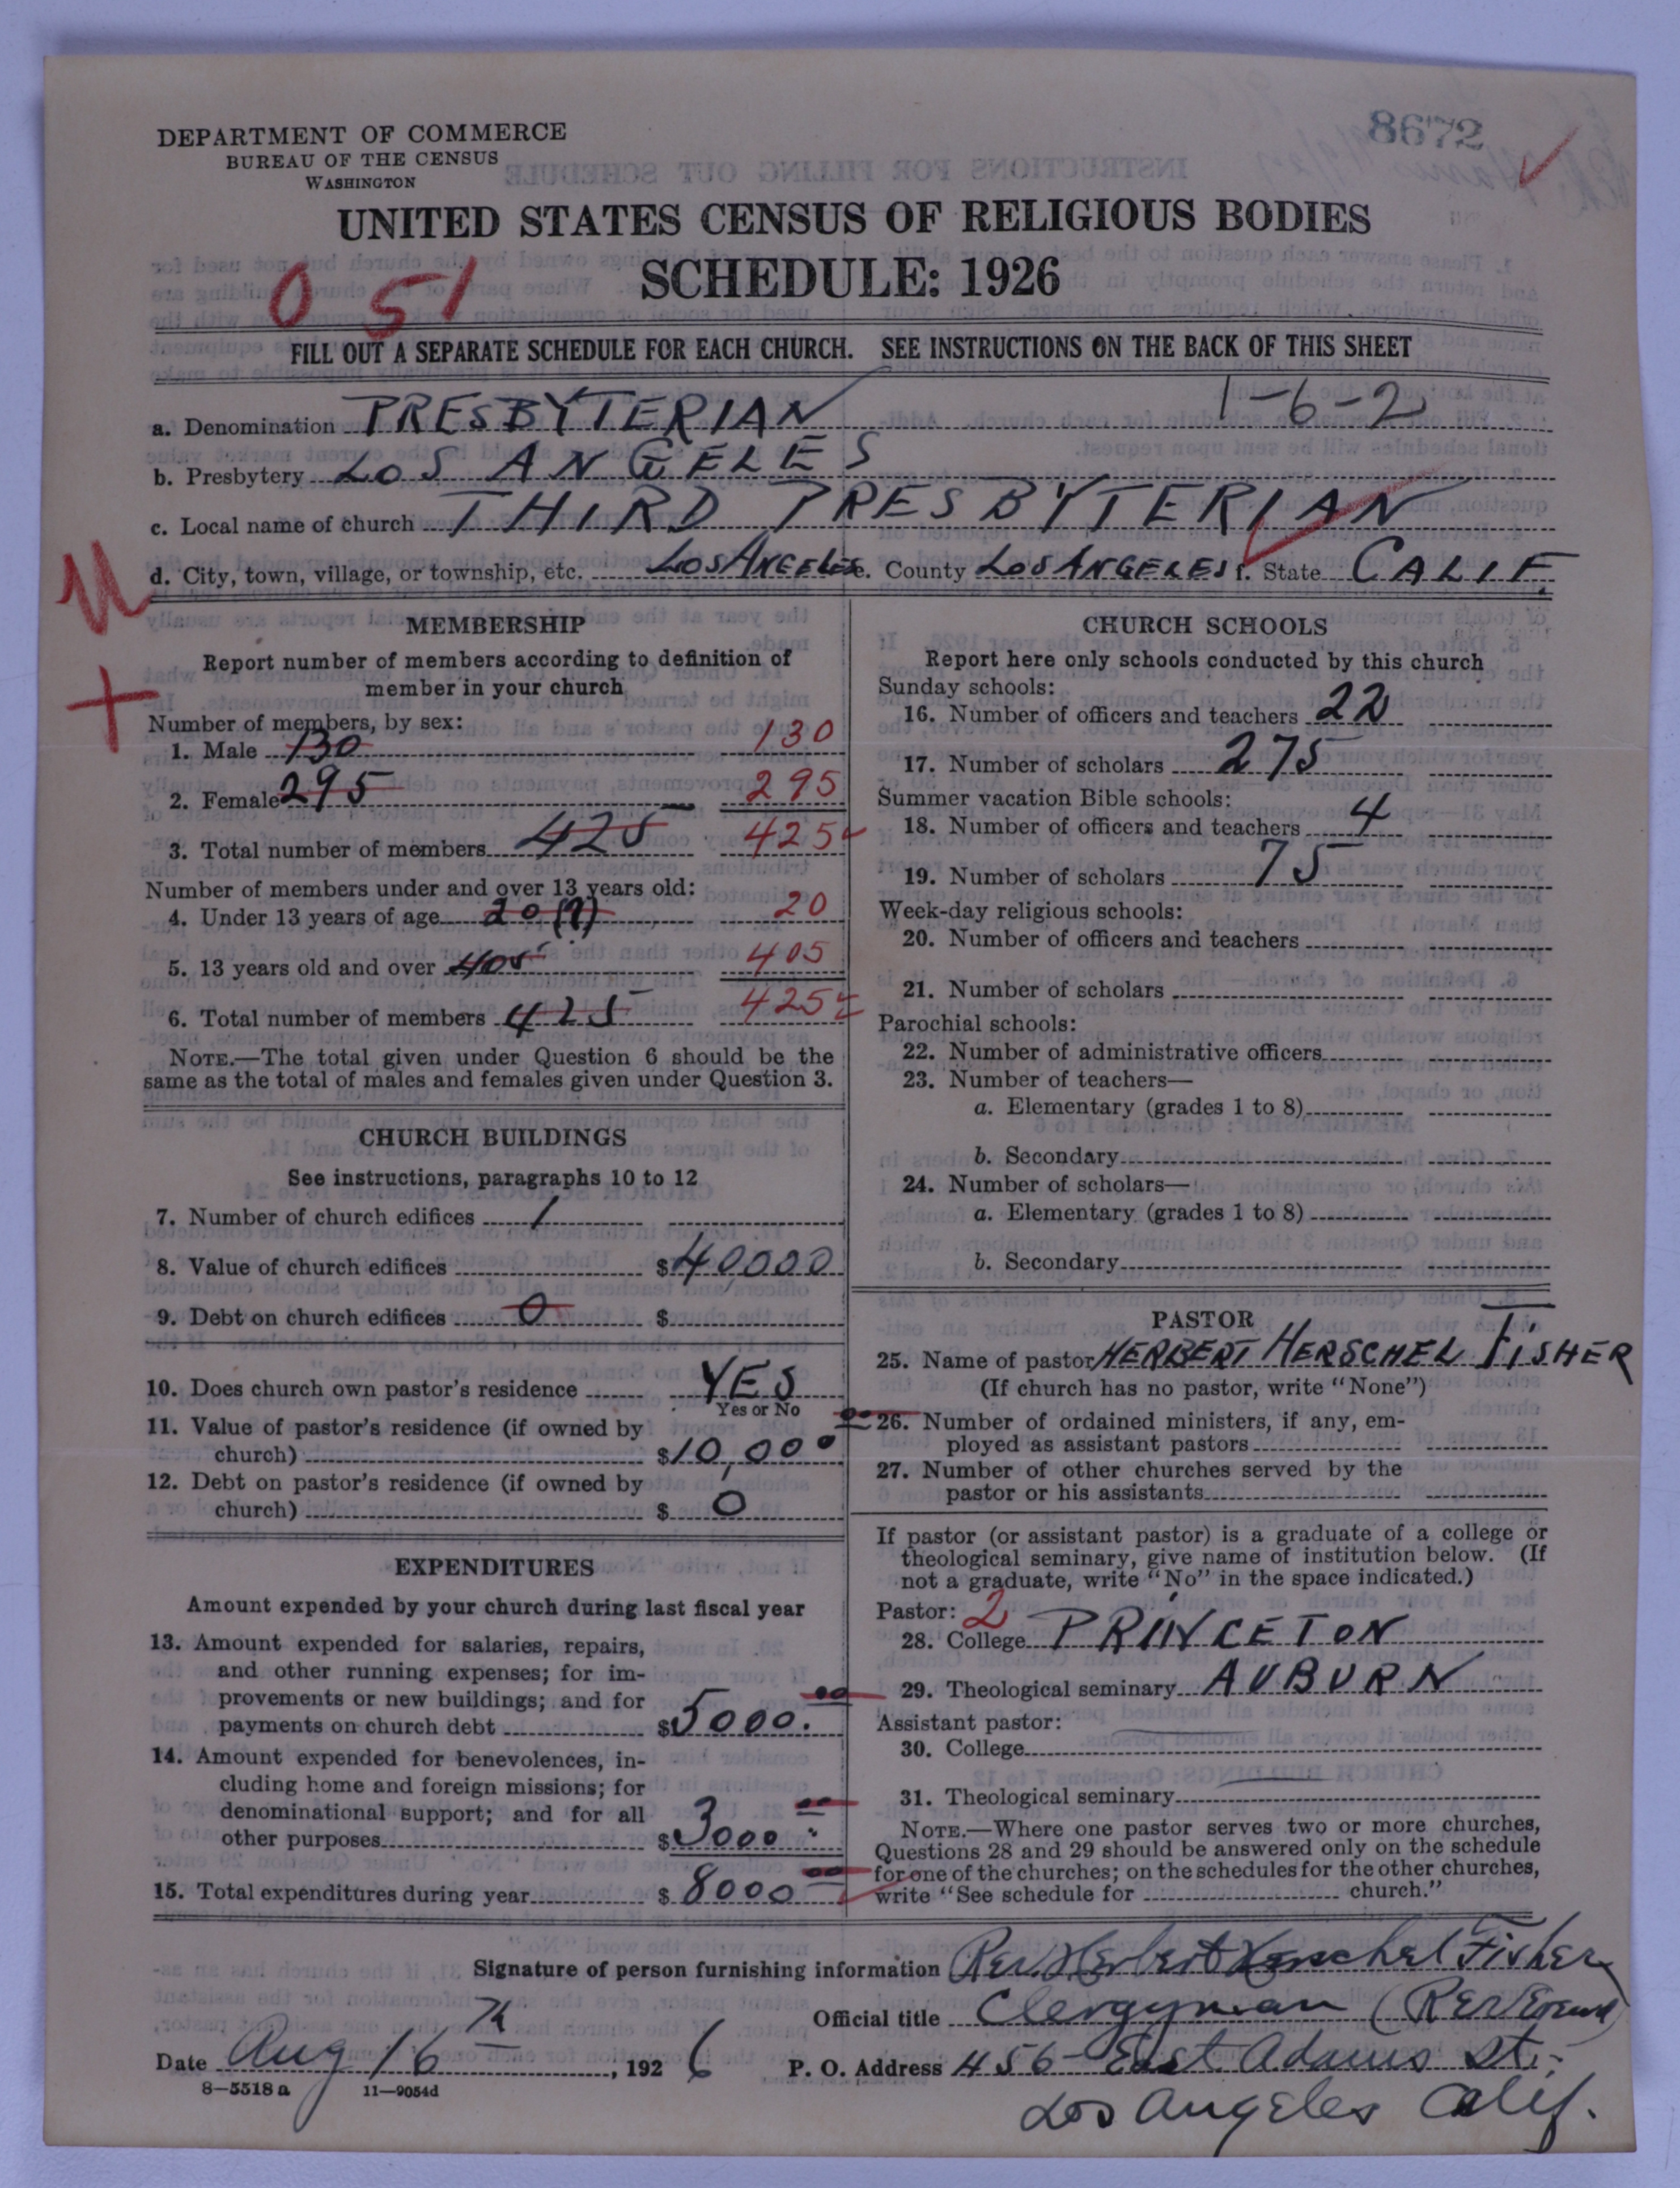 8672
DEPARTMENT OF COMMERCE
BUREAU OF THE CENSUS
WASHINGTON
UNITED STATES CENSUS OF RELIGIOUS BODIES
SCHEDULE: 1926
051
FILL OUT A SEPARATE SCHEDULE FOR EACH CHURCH. SEE INSTRUCTIONS ON THE BACK OF THIS SHEET
1-6-2
a. Denomination PRESBYTERIAN
b. Presbytery LOS ANGELES
c. Local name of church THIRD PRESBYTERIAN
d. City, town, village, or township, etc. LOS ANGELES e. County LOS ANGELES f. State CALIF.
MEMBERSHIP
Report number of members according to definition of
member in your church
Number of members, by sex:
1. Male 130 130
2. Female 295 295
3. Total number of members 425 425
Number of members under and over 13 years old:
4. Under 13 years of age 20 (?) 20
5. 13 years old and over 405 405
6. Total number of members 425 425
NOTE.—The total given under Question 6 should be the
same as the total of males and females given under Question 3.
CHURCH BUILDINGS
See instructions, paragraphs 10 to 12
7. Number of church edifices 1
8. Value of church edifices $40000
9. Debt on church edifices 0 $
10. Does church own pastor's residence YES
Yes or No
11. Value of pastor's residence (if owned by
church) $10,000 00
12. Debt on pastor's residence (if owned by
church) $ 0
EXPENDITURES
Amount expended by your church during last fiscal year
13. Amount expended for salaries, repairs,
and other running expenses; for im-
provements or new buildings; and for
payments on church debt $5000. 00
14. Amount expended for benevolences, in-
cluding home and foreign missions; for
denominational support; and for all
other purposes $3000 00
15. Total expenditures during year $8000 00
CHURCH SCHOOLS
Report here only schools conducted by this church
Sunday schools:
16. Number of officers and teachers 22
17. Number of scholars 275
Summer vacation Bible schools:
18. Number of officers and teachers 4
19. Number of scholars 75
Week-day religious schools:
20. Number of officers and teachers
21. Number of scholars
Parochial schools:
22. Number of administrative officers
23. Number of teachers—
a. Elementary (grades 1 to 8)
b. Secondary
24. Number of scholars—
a. Elementary (grades 1 to 8)
b. Secondary
PASTOR
25. Name of pastor HERBERT HERSCHEL FISHER
(If church has no pastor, write "None")
26. Number of ordained ministers, if any, em-
ployed as assistant pastors
27. Number of other churches served by the
pastor or his assistants
If pastor (or assistant pastor) is a graduate of a college or
theological seminary, give name of institution below. (If
not a graduate, write "No" in the space indicated.)
Pastor: 2
28. College PRINCETON
29. Theological seminary AUBURN
Assistant pastor:
30. College
31. Theological seminary
NOTE.—Where one pastor serves two or more churches,
Questions 28 and 29 should be answered only on the schedule
for one of the churches; on the schedules for the other churches,
write "See schedule for church."
Signature of person furnishing information Rev. Herbert Herschel Fisher
Official title Clergyman (Reverend)
Date Aug 16th, 1926 P. O. Address 456 East Adams St.
Los Angeles Calif.
8-5518a 11-9054d